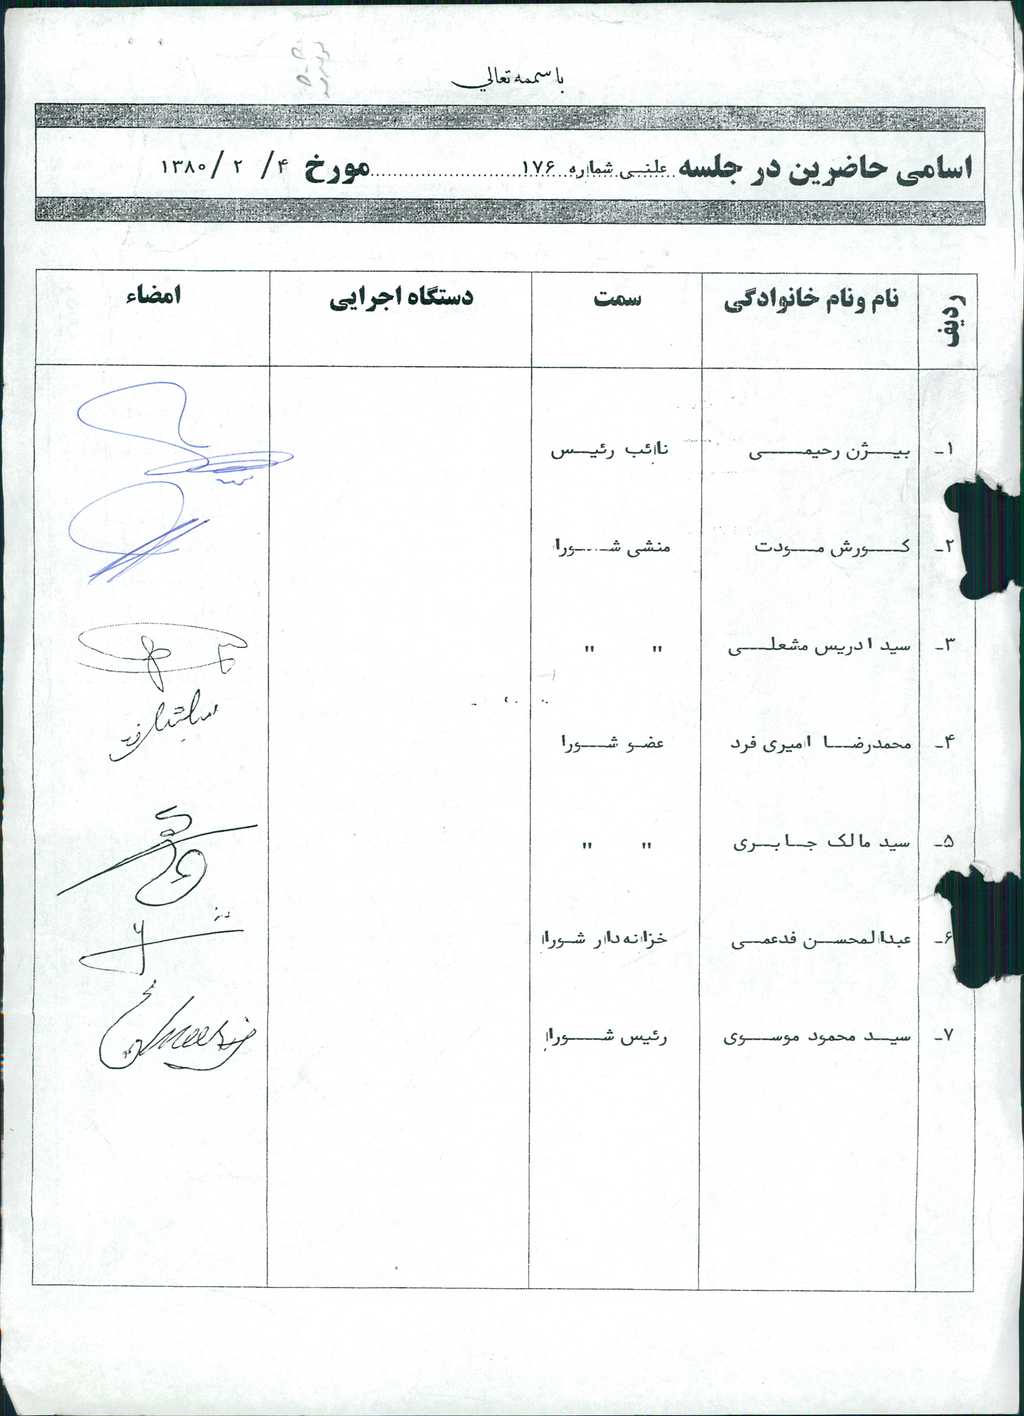 باسمه تعالي
اسامی حاضرین در جلسه علنـی شماره ۱۷۶ مورخ ۴ / ۲ / ۱۳۸۰
ردیف نام ونام خانوادگی سمت دستگاه اجرایی امضاء
۱ـ بیـــژن رحیمــــی نائب رئیــس
۲ـ کـــورش مـــودت منشی شــورا
۳ـ سید ادریس مشعلـــی " "
۴ـ محمدرضــا امیری فرد عضـو شــورا
۵ـ سید مالک جــابــری " "
۶ـ عبدالمحســن فدعمـی خزانه‌دار شورا
۷ـ سیــد محمود موســوی رئیس شــورا